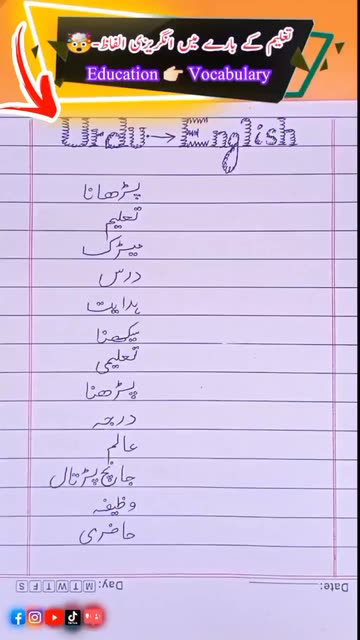 تعلیم کے بارے میں انگریزی الفاظ۔🤯
Education 👉🏻 Vocabulary
Urdu → English
پڑھانا
تعلیم
میٹرک
درس
ہدایت
سیکھنا
تعلیمی
پڑھنا
درجہ
عالم
جانچ پڑتال
وظیفہ
حاضری
Date:
Day: M T W T F S